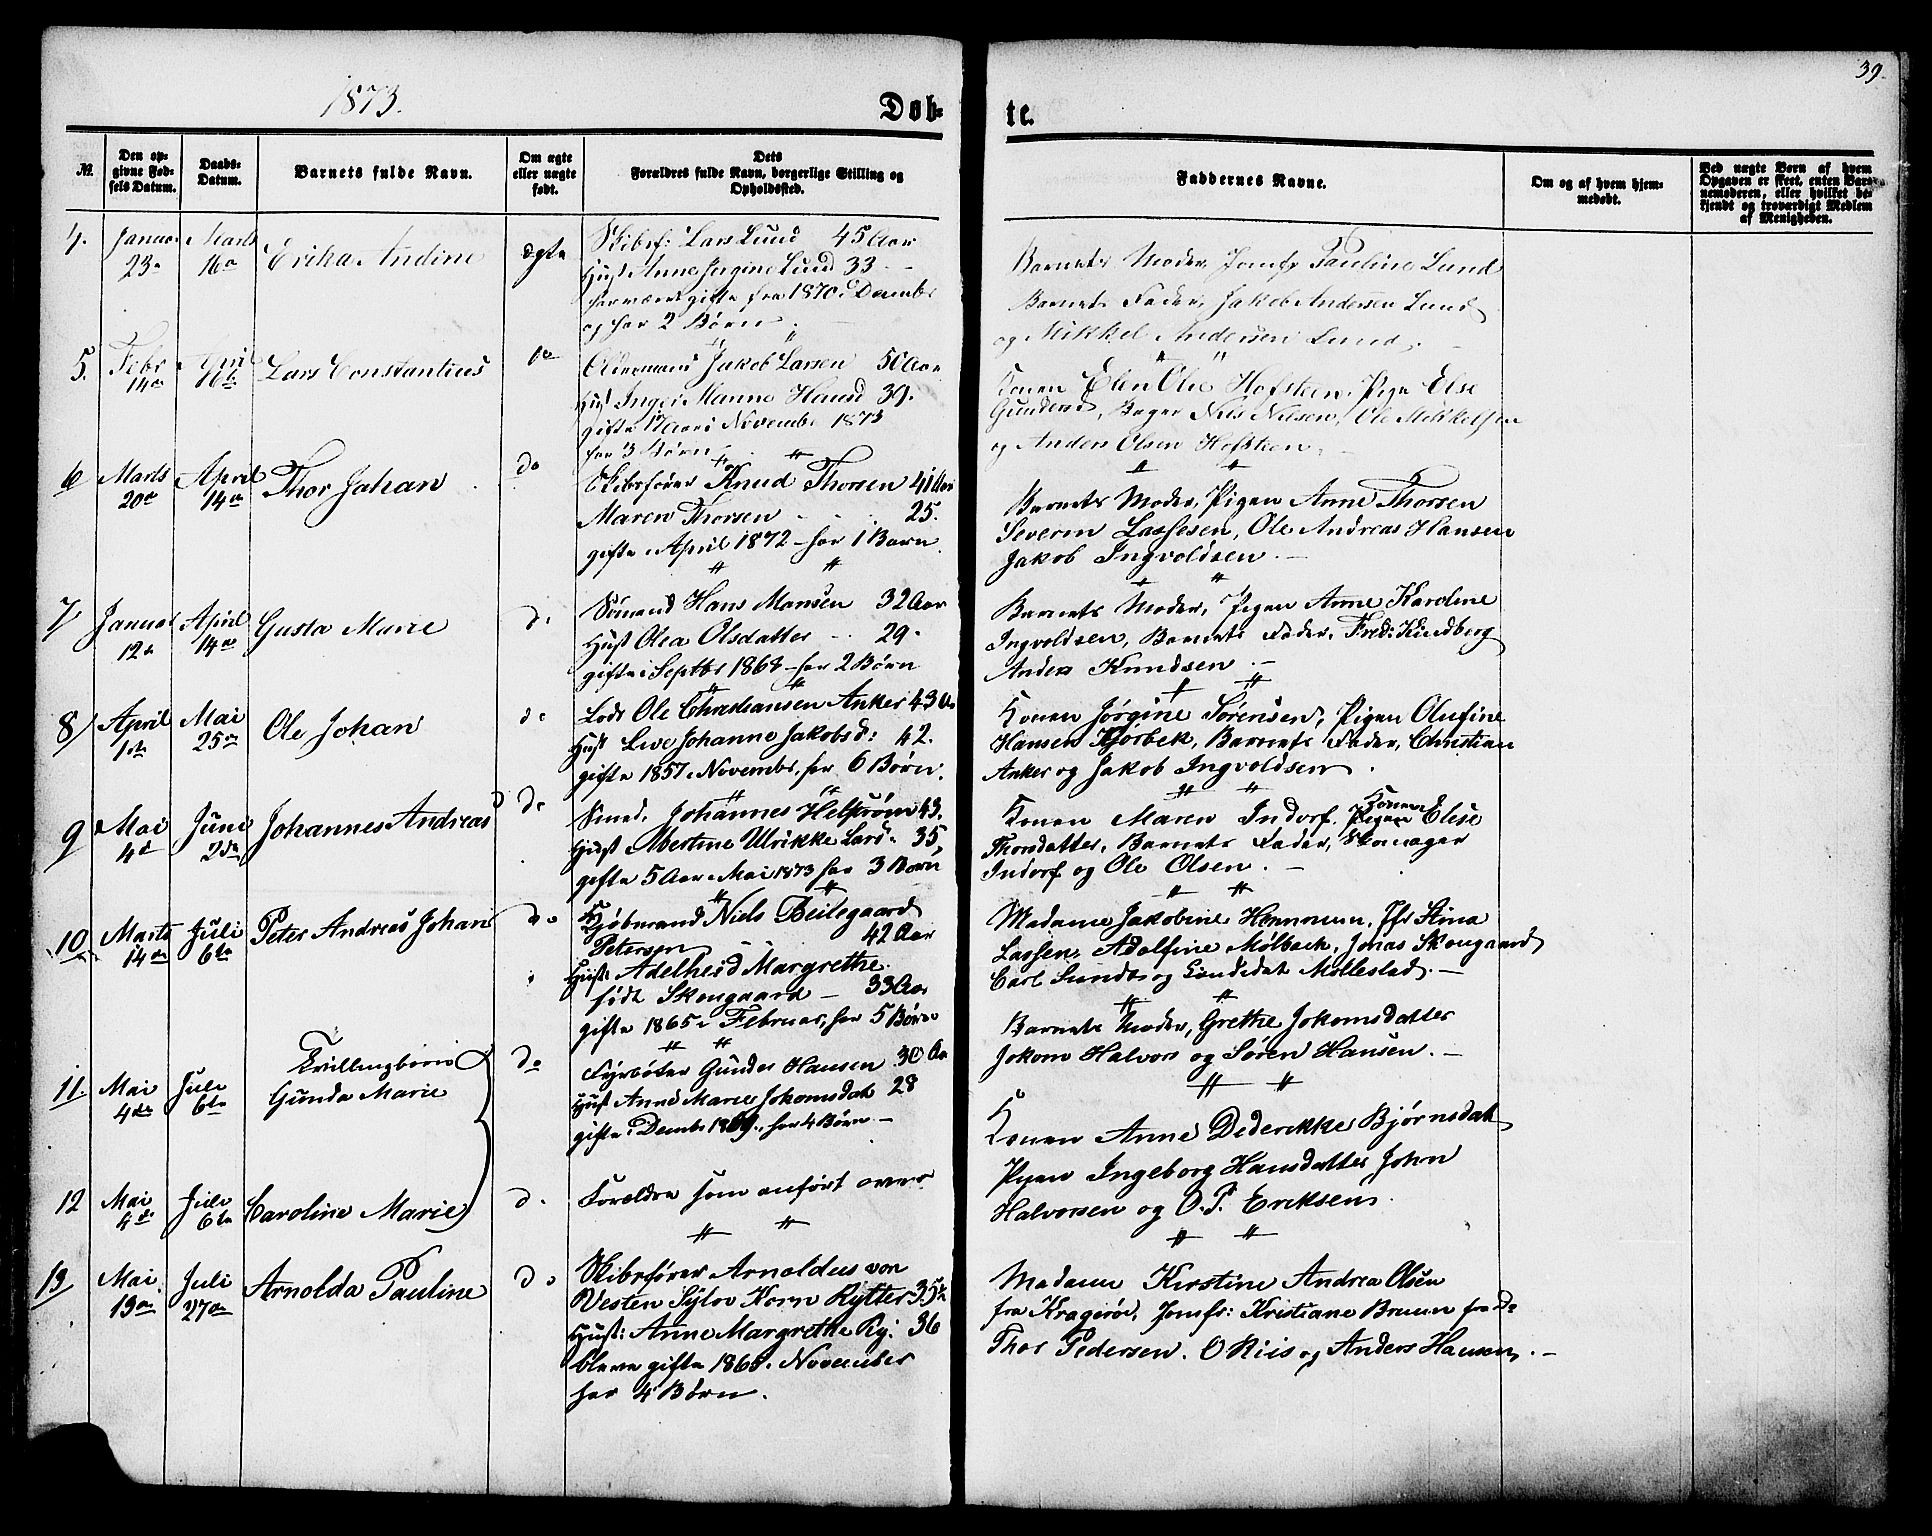 39.
1873.
Døb- te.
№
Den op-
givne Fød-
sels Datum.
Daabs-
Datum.
Barnets fulde Navn.
Om ægte
eller uægte
født.
Dets
Forældres fulde Navn, borgerlige Stilling og
Opholdssted.
Faddernes Navne.
Om og af hvem hjem-
medøbt.
Ved uægte Børn af hvem
Opgaven er skeet, enten Bar-
nemoderen, eller hvilket be-
kjendt og troværdigt Medlem
af Menigheden.
4. Januar Marts Erika Andine ægte Skibsf: Lars Lund 45 Aar
23de 16de Hust Anne Jørgine Lund 33
har været gifte fra 1870 i Decembr
og har 2 Børn.
Barnets Moder, Jomfr Pauline Lund
Barnets Fader, Jakob Andersen Lund
og Mikkel Andersen Lund.
5. Febr April Lars Constantius do Oldermand Jakob Larsen 50 Aar
14de 16de Hust Inger Manne 39.
gifte 17 Aar i November 1873
har 3 Børn
Konen Elen Olie Hofsteen, Pige Else
Gunders, Bager Nils Nilsen, Ole Mikkelsen
og Anders Olsen Hofsteen.
6 Marts April Thor Johan do Skibsfører Knud Thorsen 41 Aar
20de 14de Maren Thorsen 25.
gifte i April 1872 - har 1 Barn.
Barnets Moder, Pigen Anne Thorsen
Severin Lassesen, Ole Andreas Hansen
Jakob Ingvoldsen.
7 Januar April Gusta Marie do Sømand Hans Monsen 32 Aar
12te 14de Hust Olea Olsdatter 29.
gifte i Septbr 1868 - har 2 Børn
Barnets Moder, Pigen Anne Karoline
Ingvoldsen, Barnets Fader, Fred: Kindberg
Anders Knudsen.
8 April Mai Ole Johan do Lods Ole Christiansen Anker 43 Aar
1ste 25de Hust Live Johanne Jakobsd: 42.
gifte 1857 i Novembr, har 6 Børn.
Konen Jørgine Sørensen, Pigen Olufine
Hansen Kjørbek, Barnets Fader, Christian
Anker og Jakob Ingvoldsen.
9 Mai Juni Johannes Andreas do Smed. Johannes Helstrøm 43.
4de 2den Hust Abertine Ulrikke Lars- 35,
gifte 5 Aar i Mai 1873 har 3 Børn
Konen Maren Indorf. Konen Elise
Thorsdatter, Barnets Fader, Skomager
Indorf og Ole Olsen.
10 Marts Juli Peter Andreas Johan do Kjøbmand Niels Beilegaard
14de 6te Petersen 42 Aar
Hust Adelheid Margrethe
født Skougaard - 33 Aar
gifte 1865 i Februar, har 5 Børn
Madame Jakobine Hemmum, Jfr Stina
Lassen, Adolfine Mølbach, Jonas Skougaard
Carl Sundt og Candidat Møllestad.
11. Mai Juli Tvillingbørn do Fyrbøter Gunder Hansen 30 Aar
4de 6te Gunda Marie Hust Anne Marie Jokomsdat 28
gifte i Decembr 1869., har 4 Børn -
Barnets Moder, Grethe Jokomsdatter
Jokom Halvors og Søren Hansen.
12 Mai Juli Caroline Marie do Forældre som anført over
4de 6te
Konen Anne Dederikke Bjørnsdat
Pigen Ingeborg Hansdatter John
Halvorsen og O. P. Eriksen.
13 Mai Juli Arnolda Pauline do Skibsfører Arnoldus von
13de 27de Vesten Sylov Korn Rytter 35
Hust: Anne Margrethe Ry: 36
bleve gifte 1865 i November
har 4 Børn.
Madam Kirstine Andrea Olsen
fra Kragerøe, Jomfr: Kristiane Bruun fra do
Thor Pedersen. O Riis og Anders Hansen.